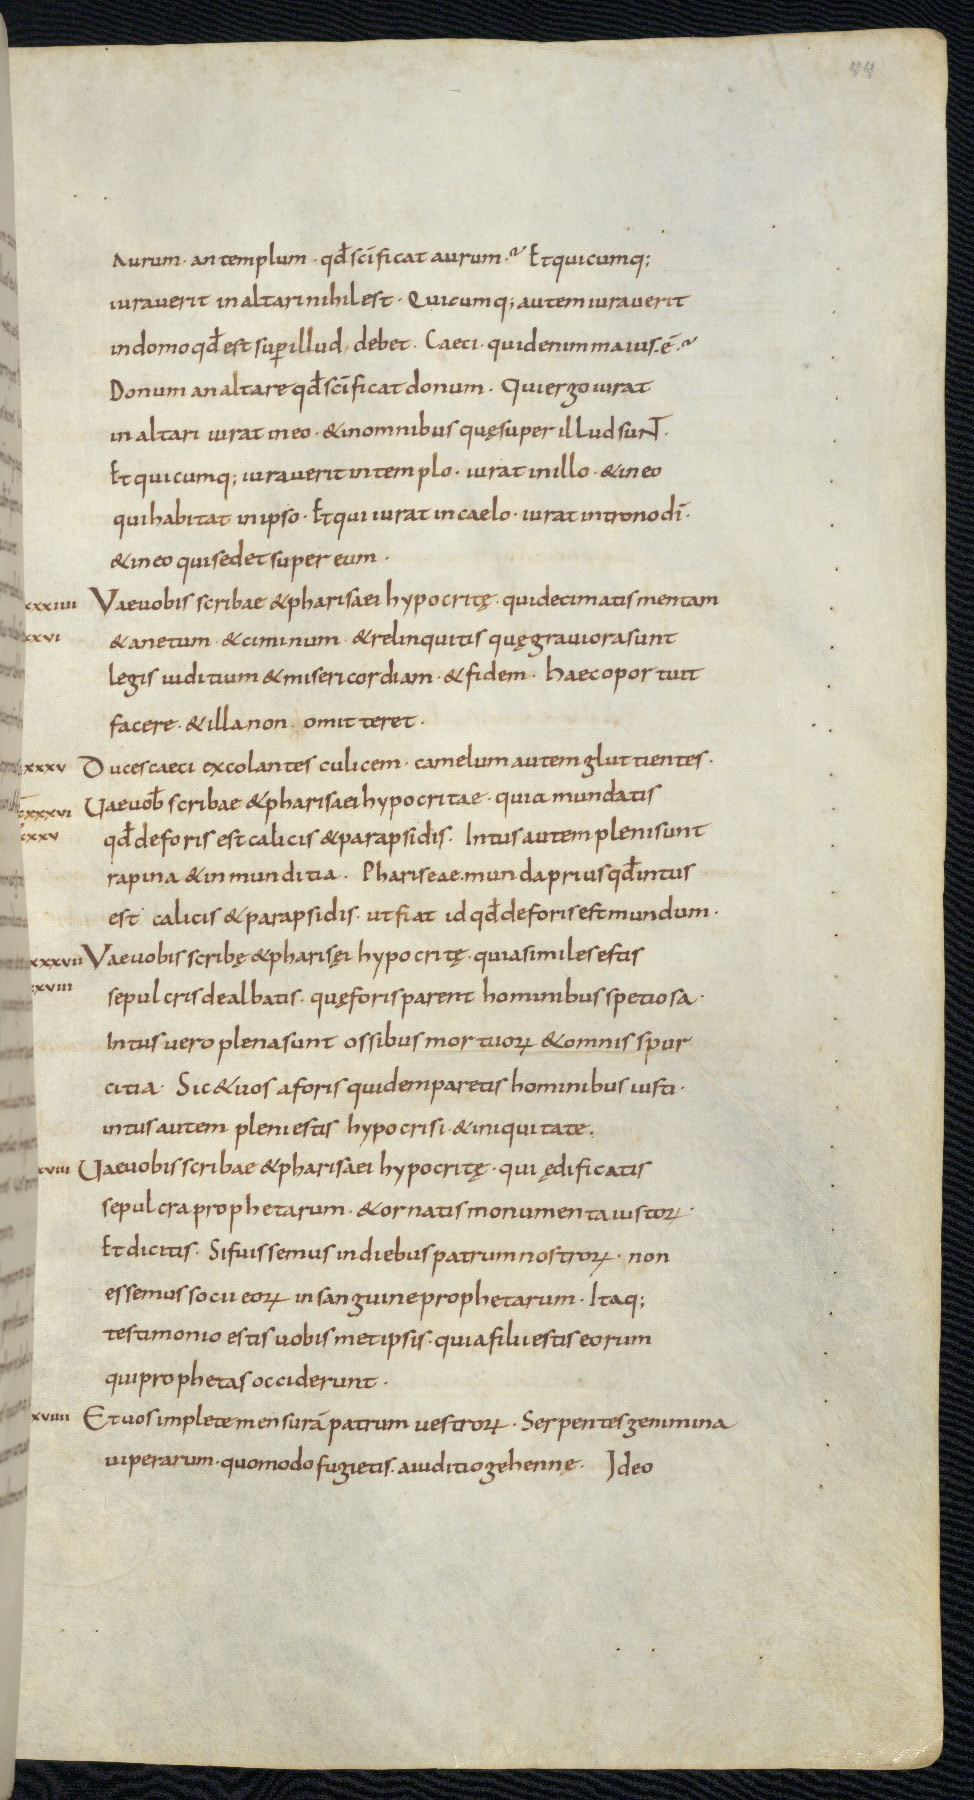 44
Aurum · an templum · qđ sc̄ificat aurum · Et quicumq;
iurauerit in altari nihil est · Quicumq; autem iurauerit
in domo qđ est sup̄ illud · debet · Caeci · quid enim maius · ē ·
Donum an altare qđ sc̄ificat donum · Qui ergo iurat
in altari iurat in eo · & in omnibus quę super illud sunt ·
Et quicumq; iurauerit in templo · iurat in illo · & in eo
qui habitat in ipso · Et qui iurat in caelo · iurat in trono dī ·
& in eo qui sedet super eum ·
xxxiiii Vae uobis scribae & pharisaei hypocritę · qui decimatis mentam
xxvi & anetum · & ciminum · & relinquitis quę grauiora sunt
legis iuditium & misericordiam · & fidem · haec oportuit
facere · & illa non omitteret ·
xxxv Duces caeci excolantes culicem · camelum autem gluttientes ·
xxxvi Uae uob̄ scribae & pharisaei hypocritae · quia mundatis
xxv qđ de foris est calicis & parapsidis · Intus autem pleni sunt
rapina & inmunditia · Phariseae munda prius qđ intus
est calicis & parapsidis · ut fiat id qđ de foris est mundum ·
xxxvii Vae uobis scribę & pharisęi hypocritę · quia similes estis
xviii sepulcris dealbatis · quę foris parent hominibus spetiosa ·
Intus uero plena sunt ossibus mortuoꝝ & omni spur
citia · Sic & uos a foris quidem paretis hominibus iusti ·
intus autem pleni estis hypocrisi · & iniquitate ·
xviii Uae uobis scribae & pharisaei hypocritę · qui ędificatis
sepulcra prophetarum · & ornatis monumenta iustoꝝ ·
Et dicitis · Si fuissemus in diebus patrum nostroꝝ · non
essemus socii eoꝝ in sanguine prophetarum · Itaq;
testimonio estis uobismetipsis · quia filii estis eorum
qui prophetas occiderunt ·
xviiii Et uos implete mensurā patrum uestroꝝ · Serpentes gemmina
uiperarum · quomodo fugietis · a iuditio gehennę · Ideo